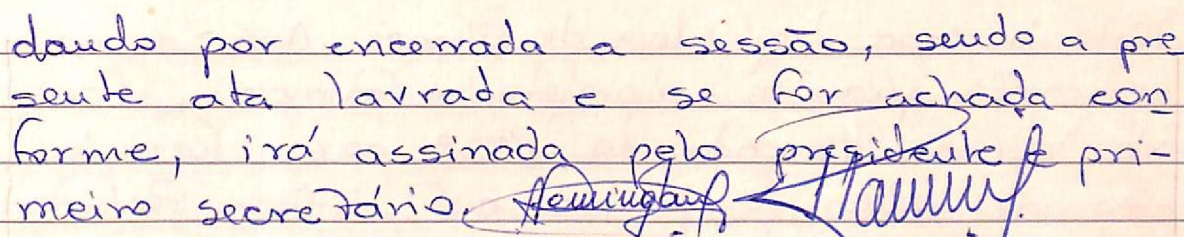 dando por encerrada a sessão, sendo a pre
sente ata lavrada e se for achada con
forme, irá assinada pelo presidente e pri-
meiro secretário.